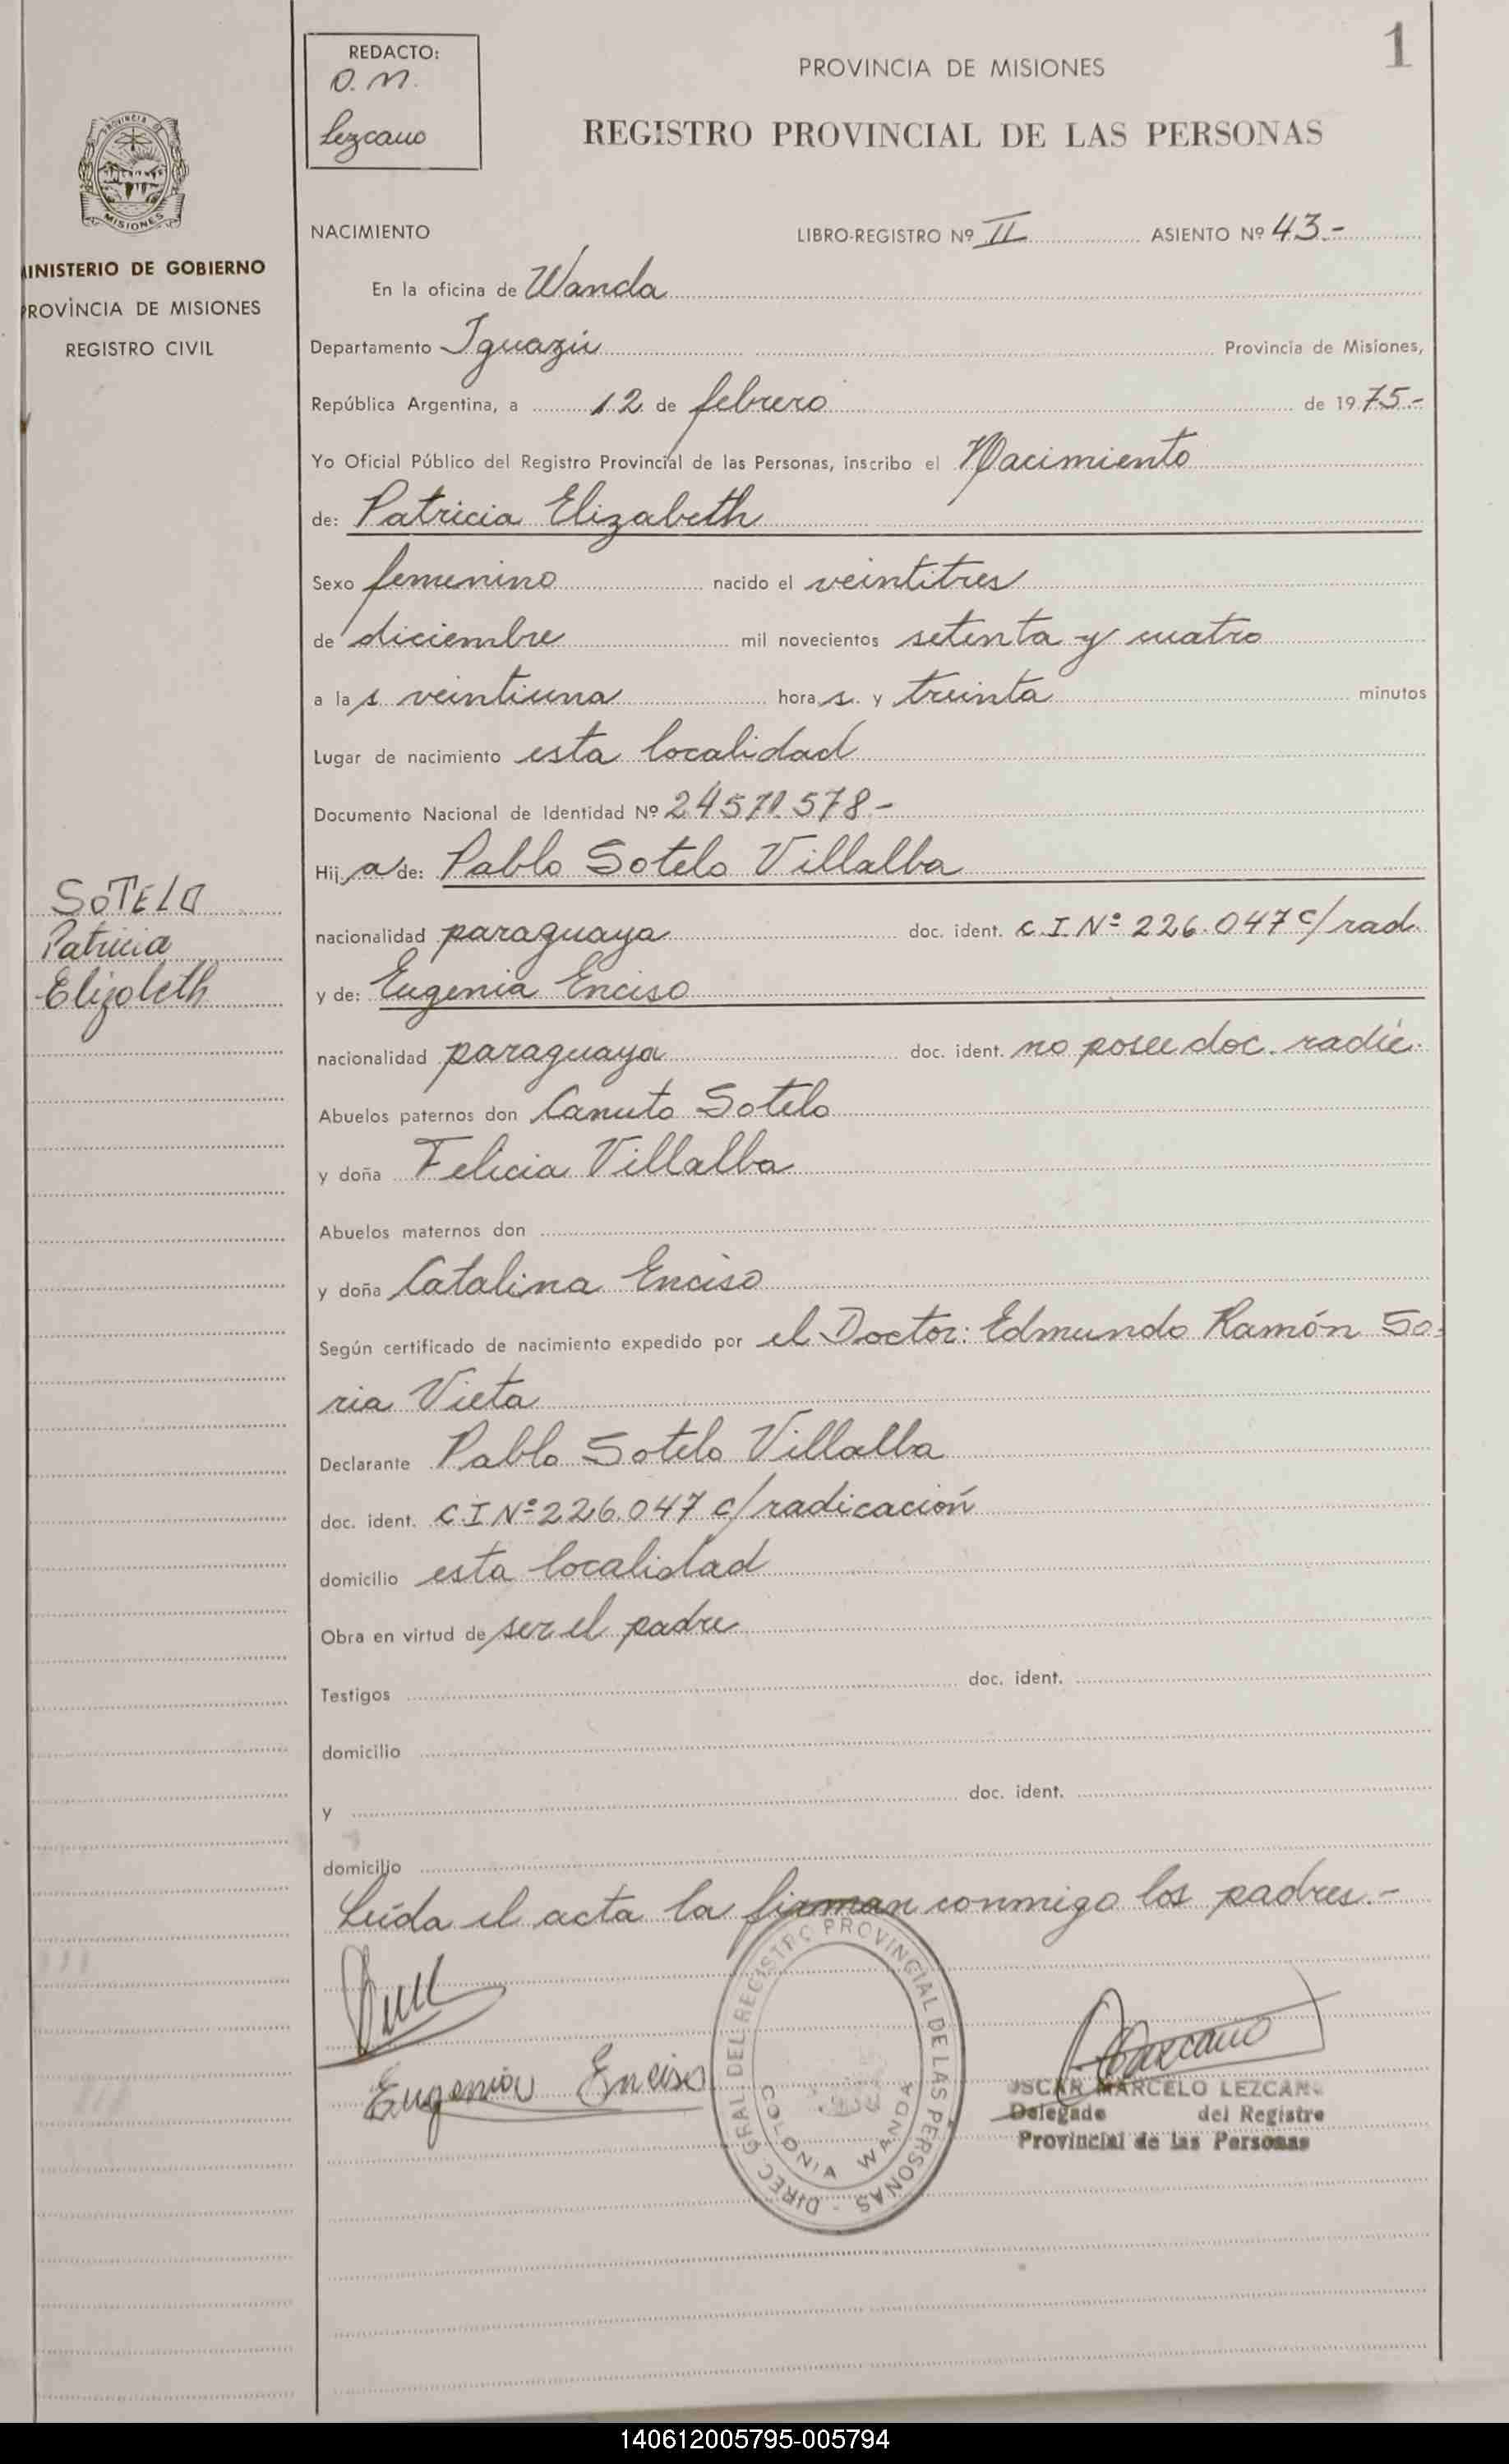 1
REDACTO:
O. M.
Lezcano
PROVINCIA DE MISIONES
REGISTRO PROVINCIAL DE LAS PERSONAS
PROVINCIA DE
MISIONES
MINISTERIO DE GOBIERNO
PROVINCIA DE MISIONES
REGISTRO CIVIL
SOTELO
Patricia
Elizabeth
NACIMIENTO LIBRO-REGISTRO Nº II ASIENTO Nº 43.-
En la oficina de Wanda
Departamento Iguazú Provincia de Misiones,
República Argentina, a 12 de febrero de 1975.-
Yo Oficial Público del Registro Provincial de las Personas, inscribo el Nacimiento
de: Patricia Elizabeth
Sexo femenino nacido el veintitres
de diciembre mil novecientos setenta y cuatro
a las veintiuna horas. y treinta minutos
Lugar de nacimiento esta localidad
Documento Nacional de Identidad Nº
Hija de: Pablo Sotelo Villalba
nacionalidad paraguaya doc. ident. C.I Nº 226.047 c/rad.
y de: Eugenia Enciso
nacionalidad paraguaya doc. ident. no posee doc. radic.
Abuelos paternos don Canuto Sotelo
y doña Felicia Villalba
Abuelos maternos don
y doña Catalina Enciso
Según certificado de nacimiento expedido por el Doctor: Edmundo Ramón So-
ria Vieta
Declarante Pablo Sotelo Villalba
doc. ident. C.I Nº 226.047 c/radicación
domicilio esta localidad
Obra en virtud de ser el padre
Testigos doc. ident.
domicilio
y doc. ident.
domicilio
Leída el acta la firman conmigo los padres.-
Eugenia Enciso
DIREC. GRAL. DEL REGISTRO PROVINCIAL DE LAS PERSONAS -
COLONIA WANDA
Lezcano
OSCAR MARCELO LEZCANO
Delegado del Registro
Provincial de las Personas
140612005795-005794